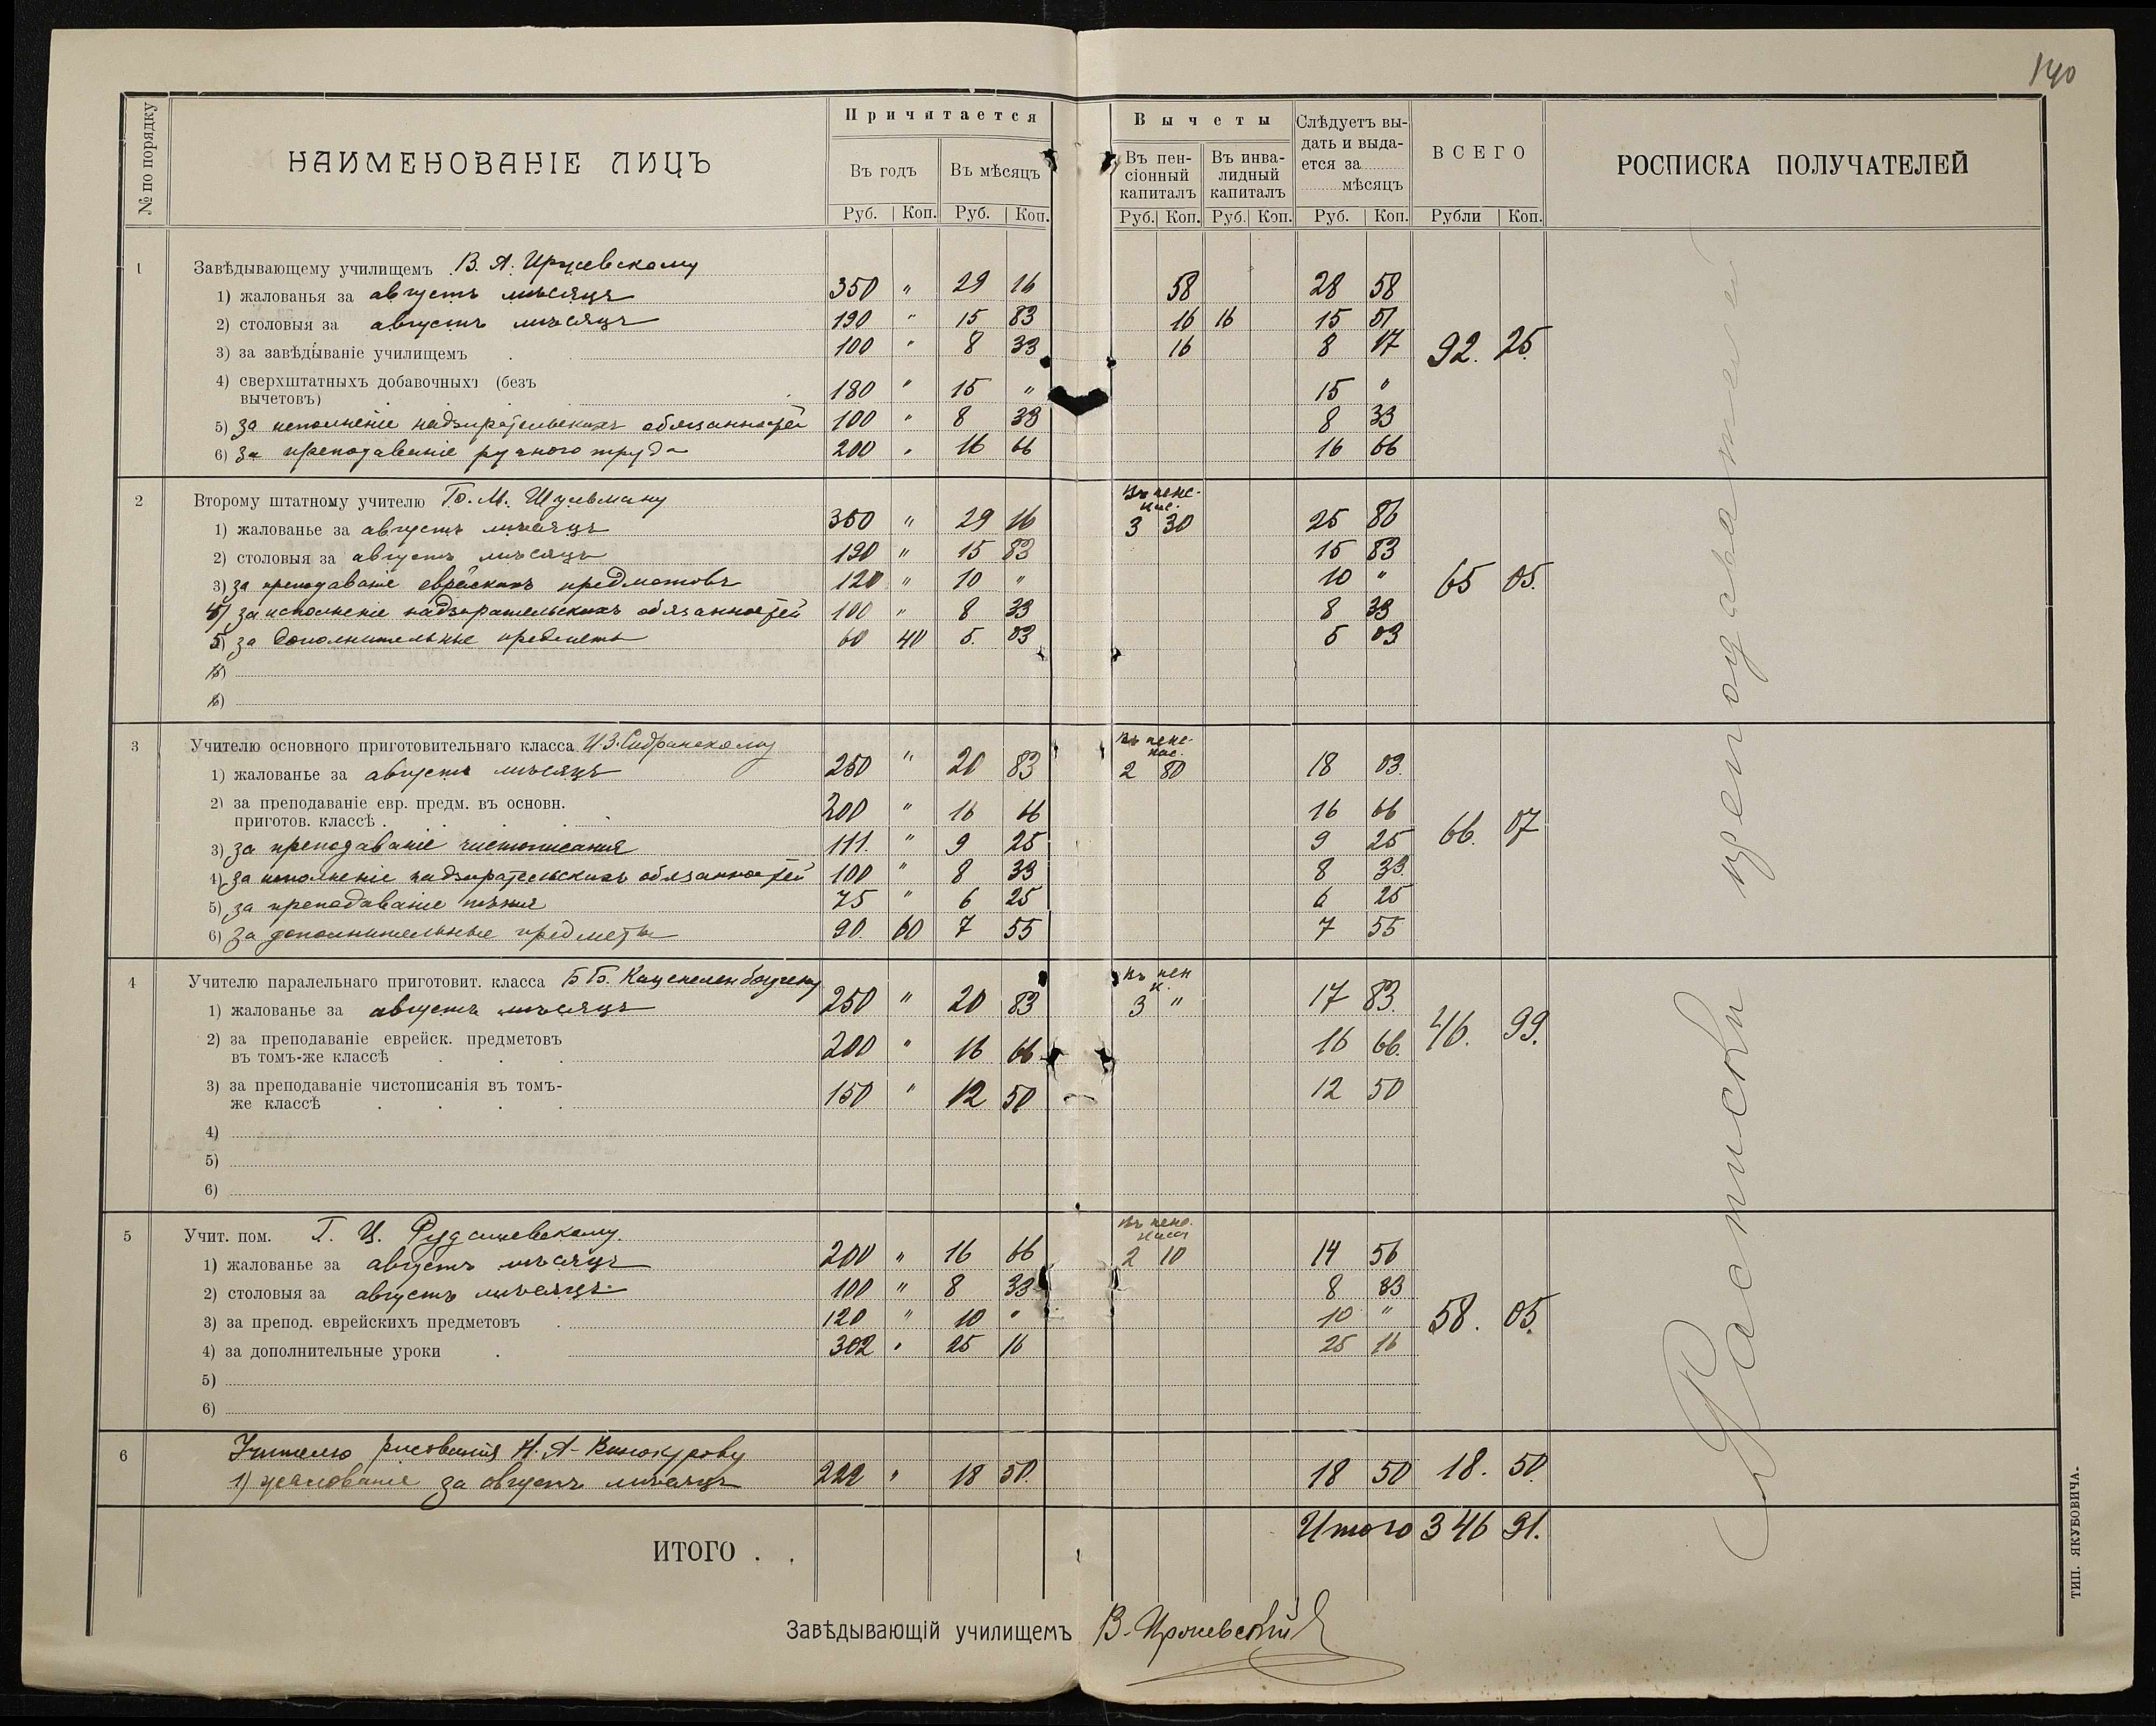 140
№ по порядку
НАИМЕНОВАНІЕ ЛИЦЪ
Причитается
Въ годъ Въ мѣсяцъ
Руб. Коп. Руб. Коп.
Вычеты
Въ пен-сіонный капиталъ Въ инва-лидный капиталъ
Руб. Коп. Руб. Коп.
Слѣдуетъ вы-
дать и выда-
ется за
мѣсяцъ
Руб. Коп.
ВСЕГО
Рубли Коп.
РОСПИСКА ПОЛУЧАТЕЛЕЙ
1 Завѣдывающему училищемъ В. А.
1) жалованья за августъ мѣсяцъ 350 " 29 16 58 28 58
2) столовыя за августъ мѣсяцъ 190 " 15 83 16 16 15 51
3) за завѣдываніе училищемъ 100 " 8 33 16 8 17 92. 25.
4) сверхштатныхъ добавочныхъ (безъ
вычетовъ) 180 " 15 " 15 "
5) за исполненіе надзирательскихъ обязанностей 100 " 8 33 8 33
6) за преподаваніе ручного труда 200 " 16 66 16 66
2 Второму штатному учителю Ю. М. Шульману
1) жалованье за августъ мѣсяцъ 350 " 29 16 3 30 25 86
2) столовыя за августъ мѣсяцъ 190 " 15 83 15 83
3) за преподаваніе еврейскихъ предметовъ 120 " 10 " 10 " 65 05.
4) за исполненіе надзирательскихъ обязанностей 100 " 8 33 8 33
5) за дополнительные предметы 60 40 5. 03 5 03
3 Учителю основного приготовительнаго класса И. З.
1) жалованье за августъ мѣсяцъ 250 " 20 83 2 80 18 03.
2) за преподаваніе евр. предм. въ основн.
приготов. классѣ 200 " 16 66 16 66
3) за преподаваніе чистописанія 111. " 9 25 9 25 66. 07
4) за исполненіе надзирательскихъ обязанностей 100 " 8 33 8 33
5) за преподаваніе пѣнія 75 " 6 25 6 25
6) за дополнительные предметы 90. 60 7 55 7 55
4 Учителю паралельнаго приготовит. класса Б. Б. Каценеленбогену
1) жалованье за августъ мѣсяцъ 250 " 20 83 3 " 17 83.
2) за преподаваніе еврейск. предметовъ
въ томъ-же классѣ 200 " 16 66 16 66. 46. 99.
3) за преподаваніе чистописанія въ томъ-
же классѣ 150 " 12 50 12 50
4)
5)
6)
5 Учит. пом. Г. Ц. Рудашевскому
1) жалованье за августъ мѣсяцъ 200 " 16 66 2 10 14 56
2) столовыя за августъ мѣсяцъ 100 " 8 33 8 33
3) за препод. еврейскихъ предметовъ 120 " 10 " 10 " 58. 05.
4) за дополнительные уроки 302 " 25 16 25 16
5)
6)
6 Учителю рисованія Н. А. Винокурову
1) жалованіе за августъ мѣсяцъ 222 " 18 50. 18 50 18. 50.
Итого 346 91.
ИТОГО . .
Завѣдывающій училищемъ В.
Расписки преподавателей
ТИП. ЯКУБОВИЧА.